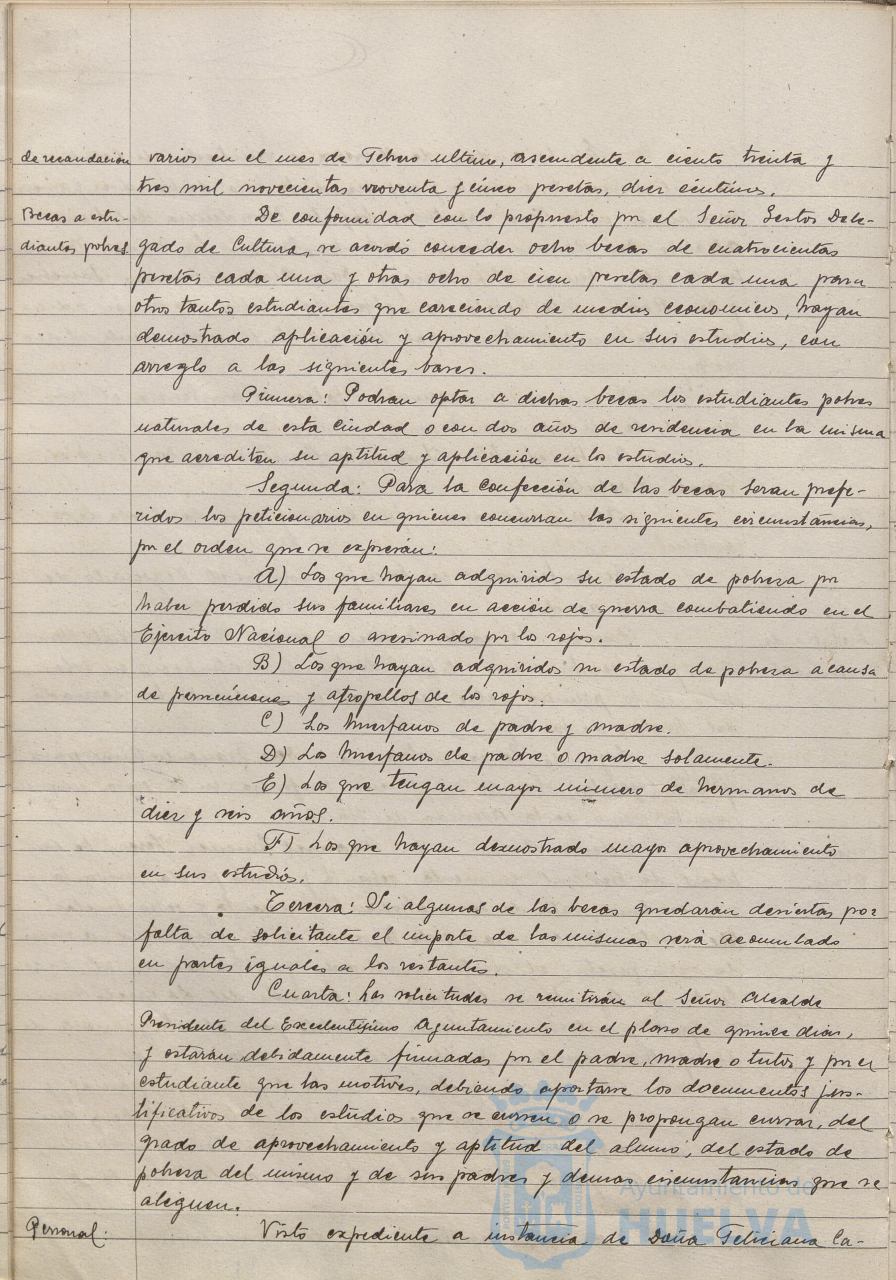 de recaudación varios en el mes de Febrero ultimo, ascendente a ciento treinta y
tres mil novecientas noventa y cinco pesetas, diez céntimos.
Becas a estu- De conformidad con lo propuesto por el Señor Gestor Dele-
diantes pobres. gado de Cultura, se acordó conceder ocho becas de cuatrocientas
pesetas cada una y otras ocho de cien pesetas cada una para
otros tantos estudiantes que careciendo de medios economicos, hayan
demostrado aplicación y aprovechamiento en sus estudios, con
arreglo a las siguientes bases.
Primera: Podran optar a dichas becas los estudiantes pobres
naturales de esta Ciudad o con dos años de residencia en la misma
que acrediten su aptitud y aplicación en los estudios.
Segunda: Para la confección de las becas seran prefe-
ridos los peticionarios en quienes concurran las siguientes circunstancias,
por el orden que se expresan:
A) Los que hayan adquirido su estado de pobreza por
haber perdido sus familiares en acción de guerra combatiendo en el
Ejercito Nacional o asesinado por los rojos.
B) Los que hayan adquiridos su estado de pobreza a causa
de y atropellos de los rojos.
C) Los huerfanos de padre y madre.
D) Los huerfanos de padre o madre solamente.
E) Los que tengan mayor número de hermanos de
diez y seis años.
F) Los que hayan demostrado mayor aprovechamiento
en sus estudiós.
Tercera: Si algunas de las becas quedarán desiertas por
falta de solicitante el importe de las mismas será acumulado
en partes iguales a los restantes.
Cuarta: Las solicitudes se remitirán al Señor Alcalde
Presidente del Excelentisimo Ayuntamiento en el plaso de quince dias,
y estarán debidamente firmadas por el padre, madre o tutor y por el
estudiante que las motives, debiendo aportarse los documentos jus-
tificativos de los estudios que se cursen o se propongan cursar, del
grado de aprovechamiento y aptitud del alumo, del estado de
pobreza del mismo y de sus padres y demas circunstancias que se
aleguen.
Personal: Visto expediente a instancia de Doña Feliciana Ca-
Ayuntamiento de
HUELVA